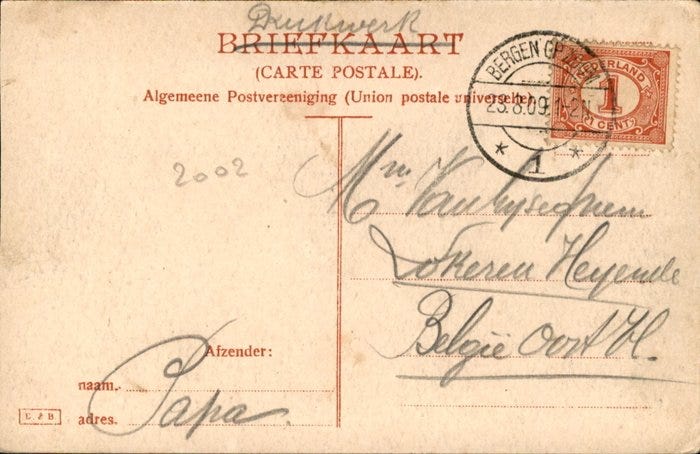 Drukwerk
BRIEFKAART
(CARTE POSTALE).
Algemeene Postvereeniging (Union postale universelle)
BERGEN OP ZOOM
23.8.09. 1-2N
* 1 *
NEDERLAND
1
1 CENT
2002
Mr
Lokeren Heyende
België Oost Vl.
Afzender:
naam.
Papa
adres.